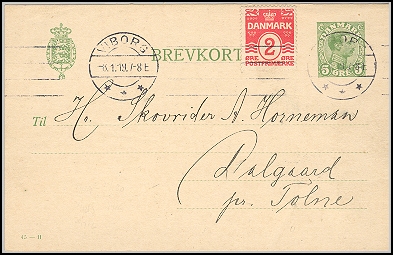 VIBORG
8.1.19.7-8 E
BREVKORT
DANMARK
2
ØRE ØRE
POSTFRIMÆRKE
DANMARK
5 ØRE 5
Til
H. Skovrider A. Horneman
Dalgaard
pr. Tolne
43 - H